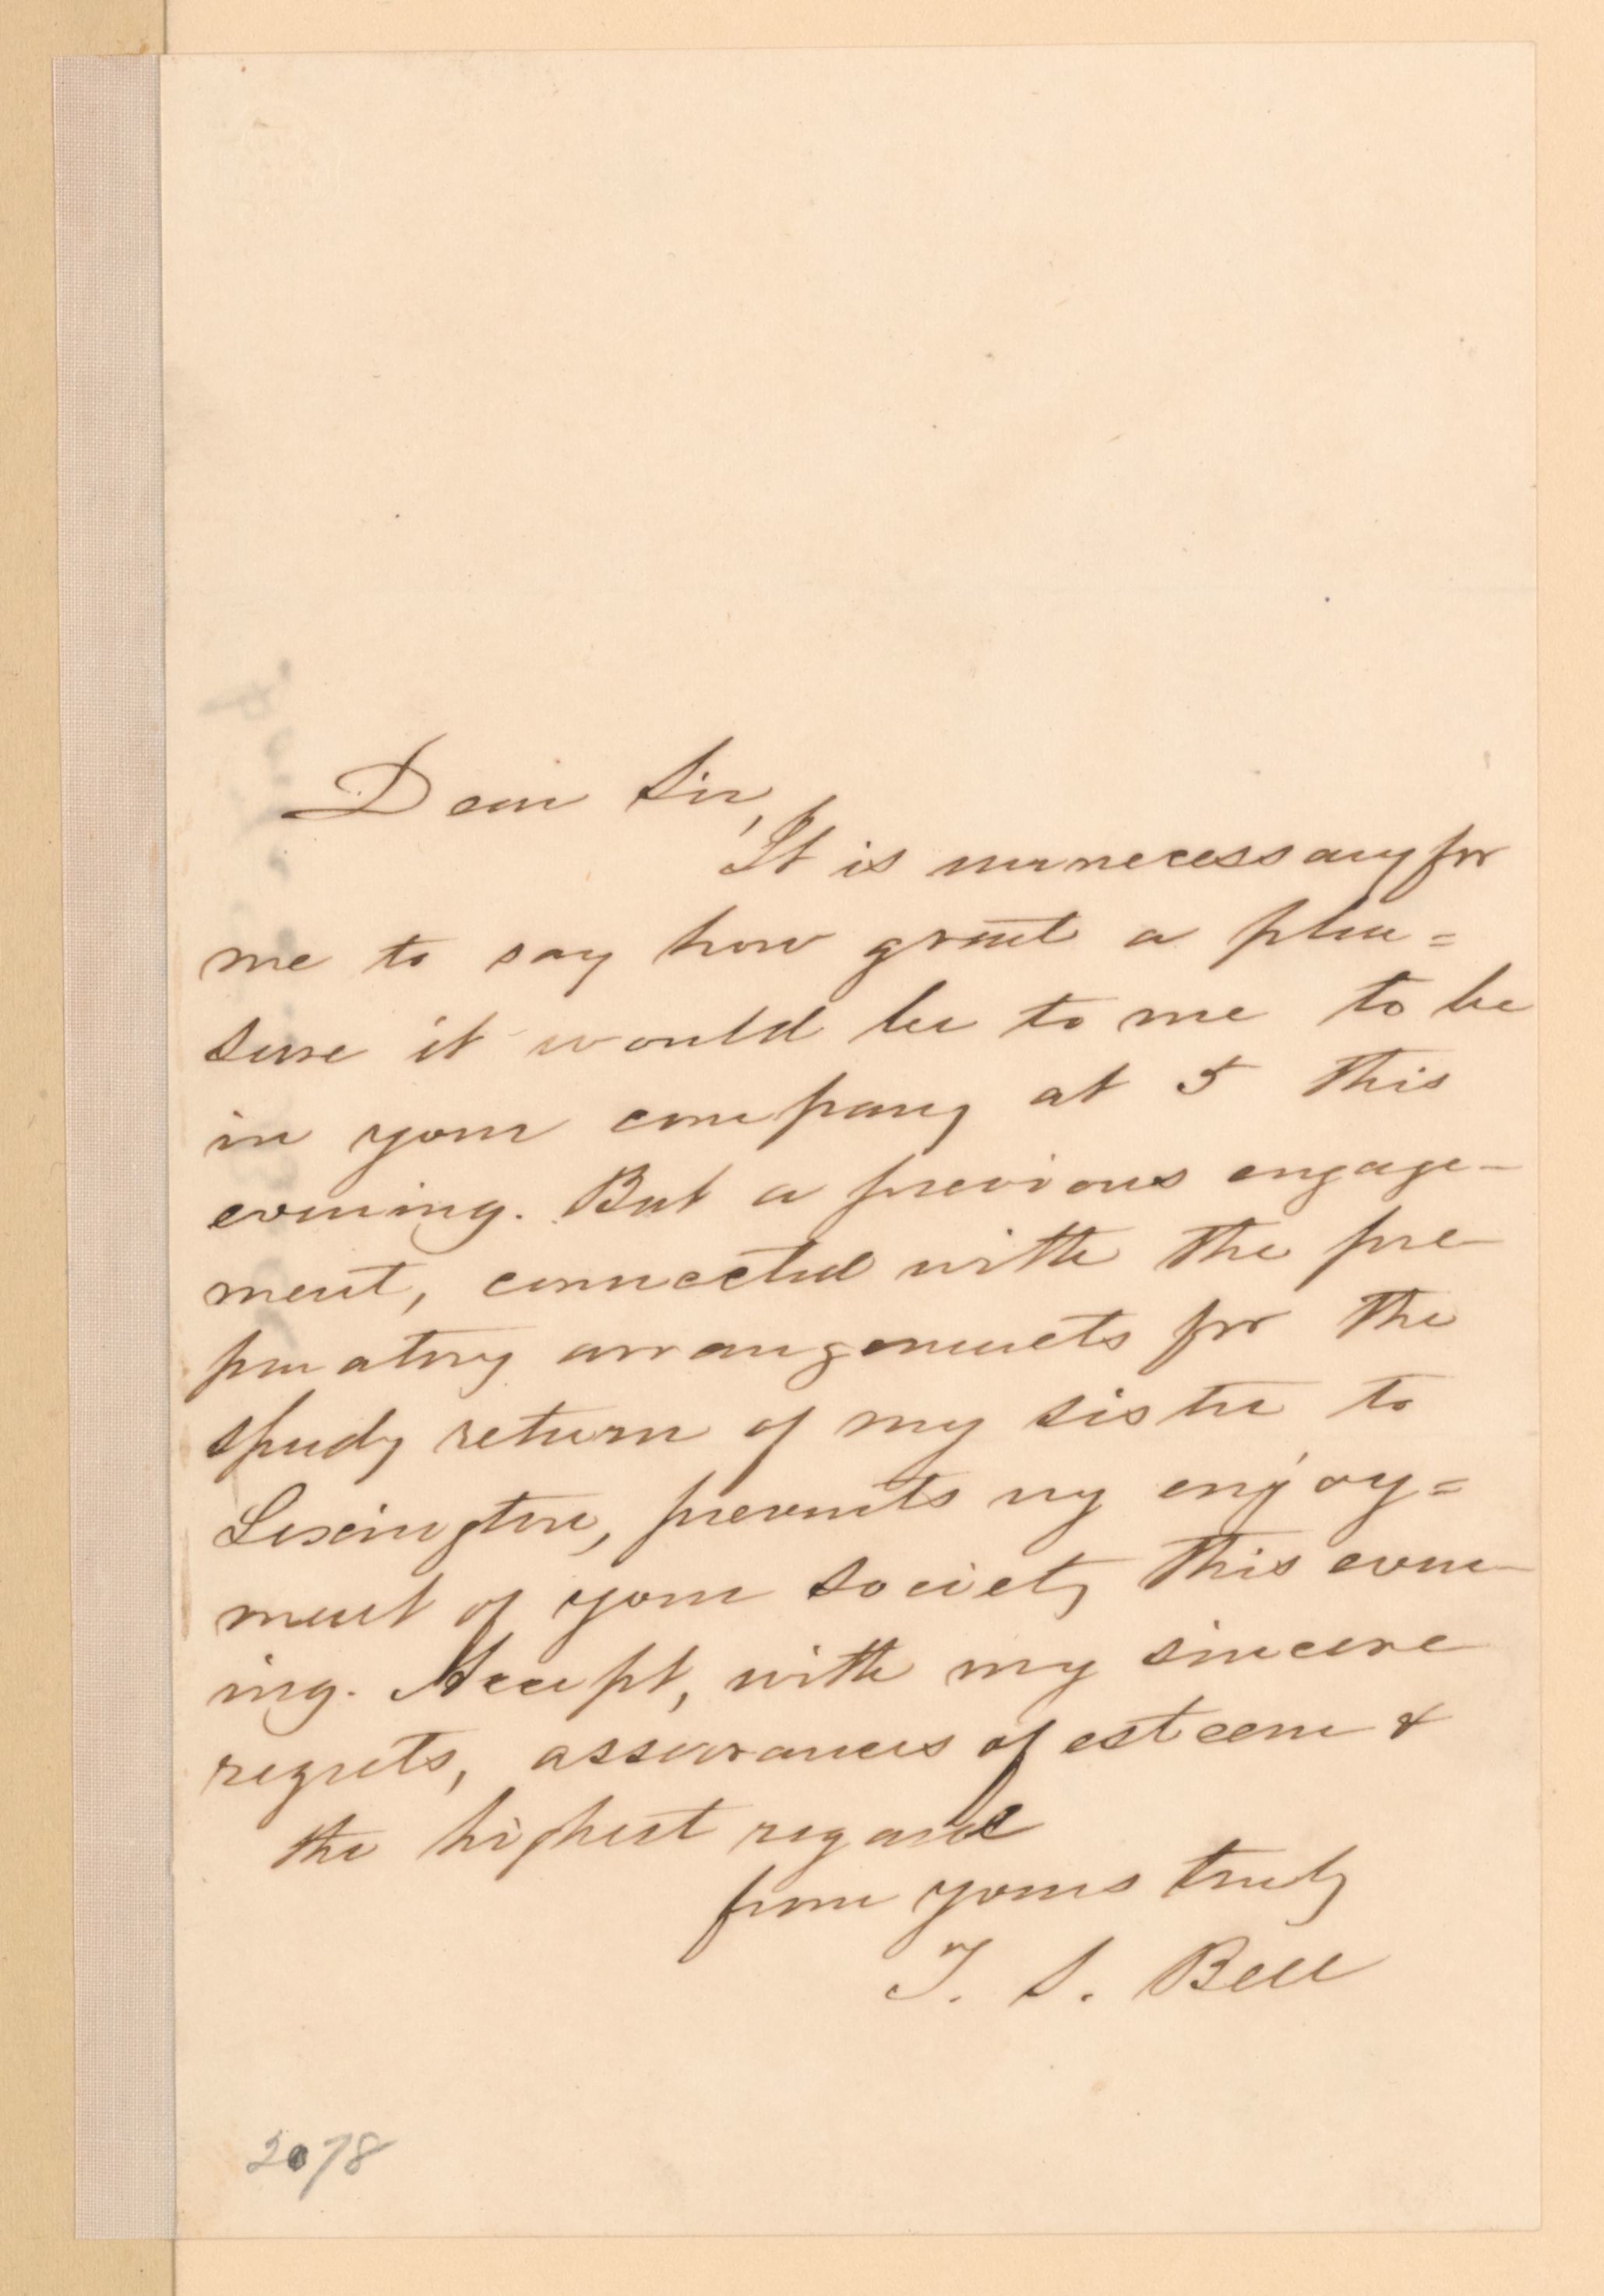 Dear Sir,
It is unnecessary for
me to say how great a plea=
sure it would be to me to be
in your company at 5 this
evening. But a previous engage-
ment, connected with the pre-
paratory arrangements for the
speedy return of my sister to
Lexington, prevents my enjoy=
ment of your society this even-
ing. Accept, with my sincere
regrets, assurances of esteem &
the highest regard
from yours truly
T. S. Bell
2078